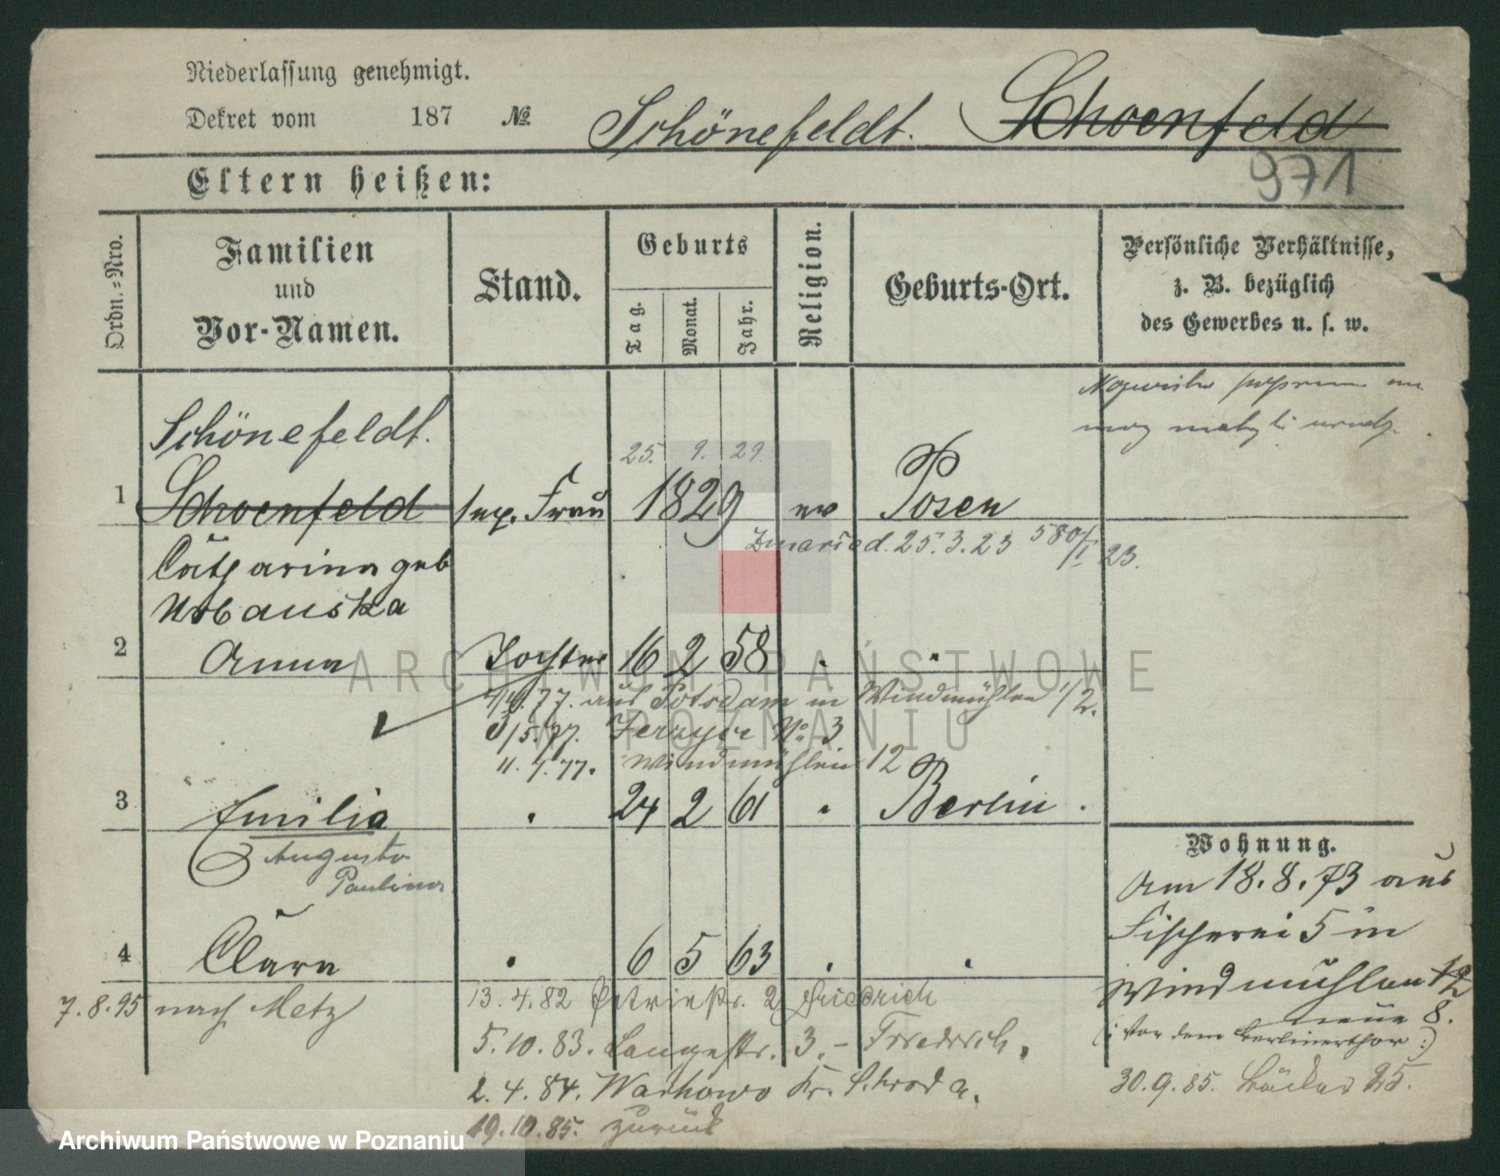 Niederlassung genehmigt.
Dekret vom 187 No.
Schönefeldt. Schoenfeld
971
Eltern heißen:
Ordn.=Nro.
Familien
und
Vor-Namen.
Stand.
Geburts
Tag.
Monat.
Jahr.
Religion.
Geburts-Ort.
Persönliche Verhältnisse,
z. B. bezüglich
des Gewerbes u. s. w.
Schönefeldt.
25. 9. 29
1 Schoenfeld sep. Frau 1829 ev Posen
25.3.23 580/I 23.
Catharina geb
Urbanska
2 Anna Tochter 16 2 58 " "
77. aus Potsdam in Windmühlen 1/2.
3/5.77. Jerzyce No 3
11.7.77. Windmühlen 12
3 Emilia " 24 2 61 " Berlin.
Auguste
Paulina
Wohnung.
Am 18.8.73 aus
Fischerei 5 in
Windmühlen 12
neue 8.
(: vor dem Berlinerthor :)
4 Clara " 6 5 63 " "
7.8.95 nach Metz
13.4.82 Petristr. 2 Friedrich
5.10.83. Langestr. 3. – Friedrich.
2.4.84. Kr. Schroda.
19.10.85. zurück
30.9.85. Bäcker 25.
ARCHIWUM PAŃSTWOWE
W POZNANIU
Archiwum Państwowe w Poznaniu